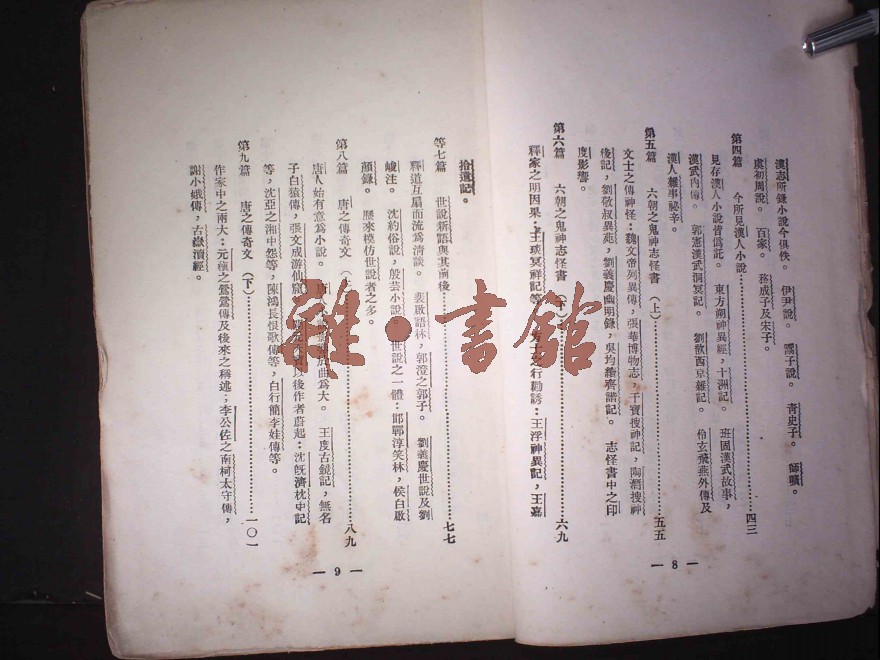 漢志所錄小說今俱佚。　伊尹說。　鬻子說。　青史子。　師曠。
虞初周說。　百家。　務成子及宋子。
第四篇　今所見漢人小說……四三
見存漢人小說皆僞託。　東方朔神異經，十洲記。　班固漢武故事，
漢武內傳。　郭憲漢武洞冥記。　劉歆西京雜記。　伶玄飛燕外傳及
漢人雜事祕辛。
第五篇　六朝之鬼神志怪書（上）……五五
文士之傳神怪：魏文帝列異傳，張華博物志，干寶搜神記，陶潛搜神
後記，劉敬叔異苑，劉義慶幽明錄，吳均續齊諧記。　志怪書中之印
度影響。
第六篇　六朝之鬼神志怪書（下）……六九
釋家之明因果：王琰冥祥記等。　方士之行勸誘：王浮神異記，王嘉
— 8 —
拾遺記。
等七篇　世說新語與其前後……七七
釋道互扇而流爲清談。　裴啟語林，郭澄之郭子。　劉義慶世說及劉
峻注。　沈約俗說，殷芸小說。　世說之一體：邯鄲淳笑林，侯白啟
顏錄。　歷來模仿世說者之多。
第八篇　唐之傳奇文（ ……八九
唐人始有意爲小說。　唐人 曲爲大。　王度古鏡記，無名
子白猿傳，張文成游仙窟。 以後作者蔚起：沈旣濟枕中記
等，沈亞之湘中怨等，陳鴻長恨歌傳等，白行簡李娃傳等。
第九篇　唐之傳奇文（下）……一〇一
作家中之兩大：元稹之鶯鶯傳及後來之稱述；李公佐之南柯太守傳，
謝小娥傳，古嶽瀆經。
— 9 —
雜·書館